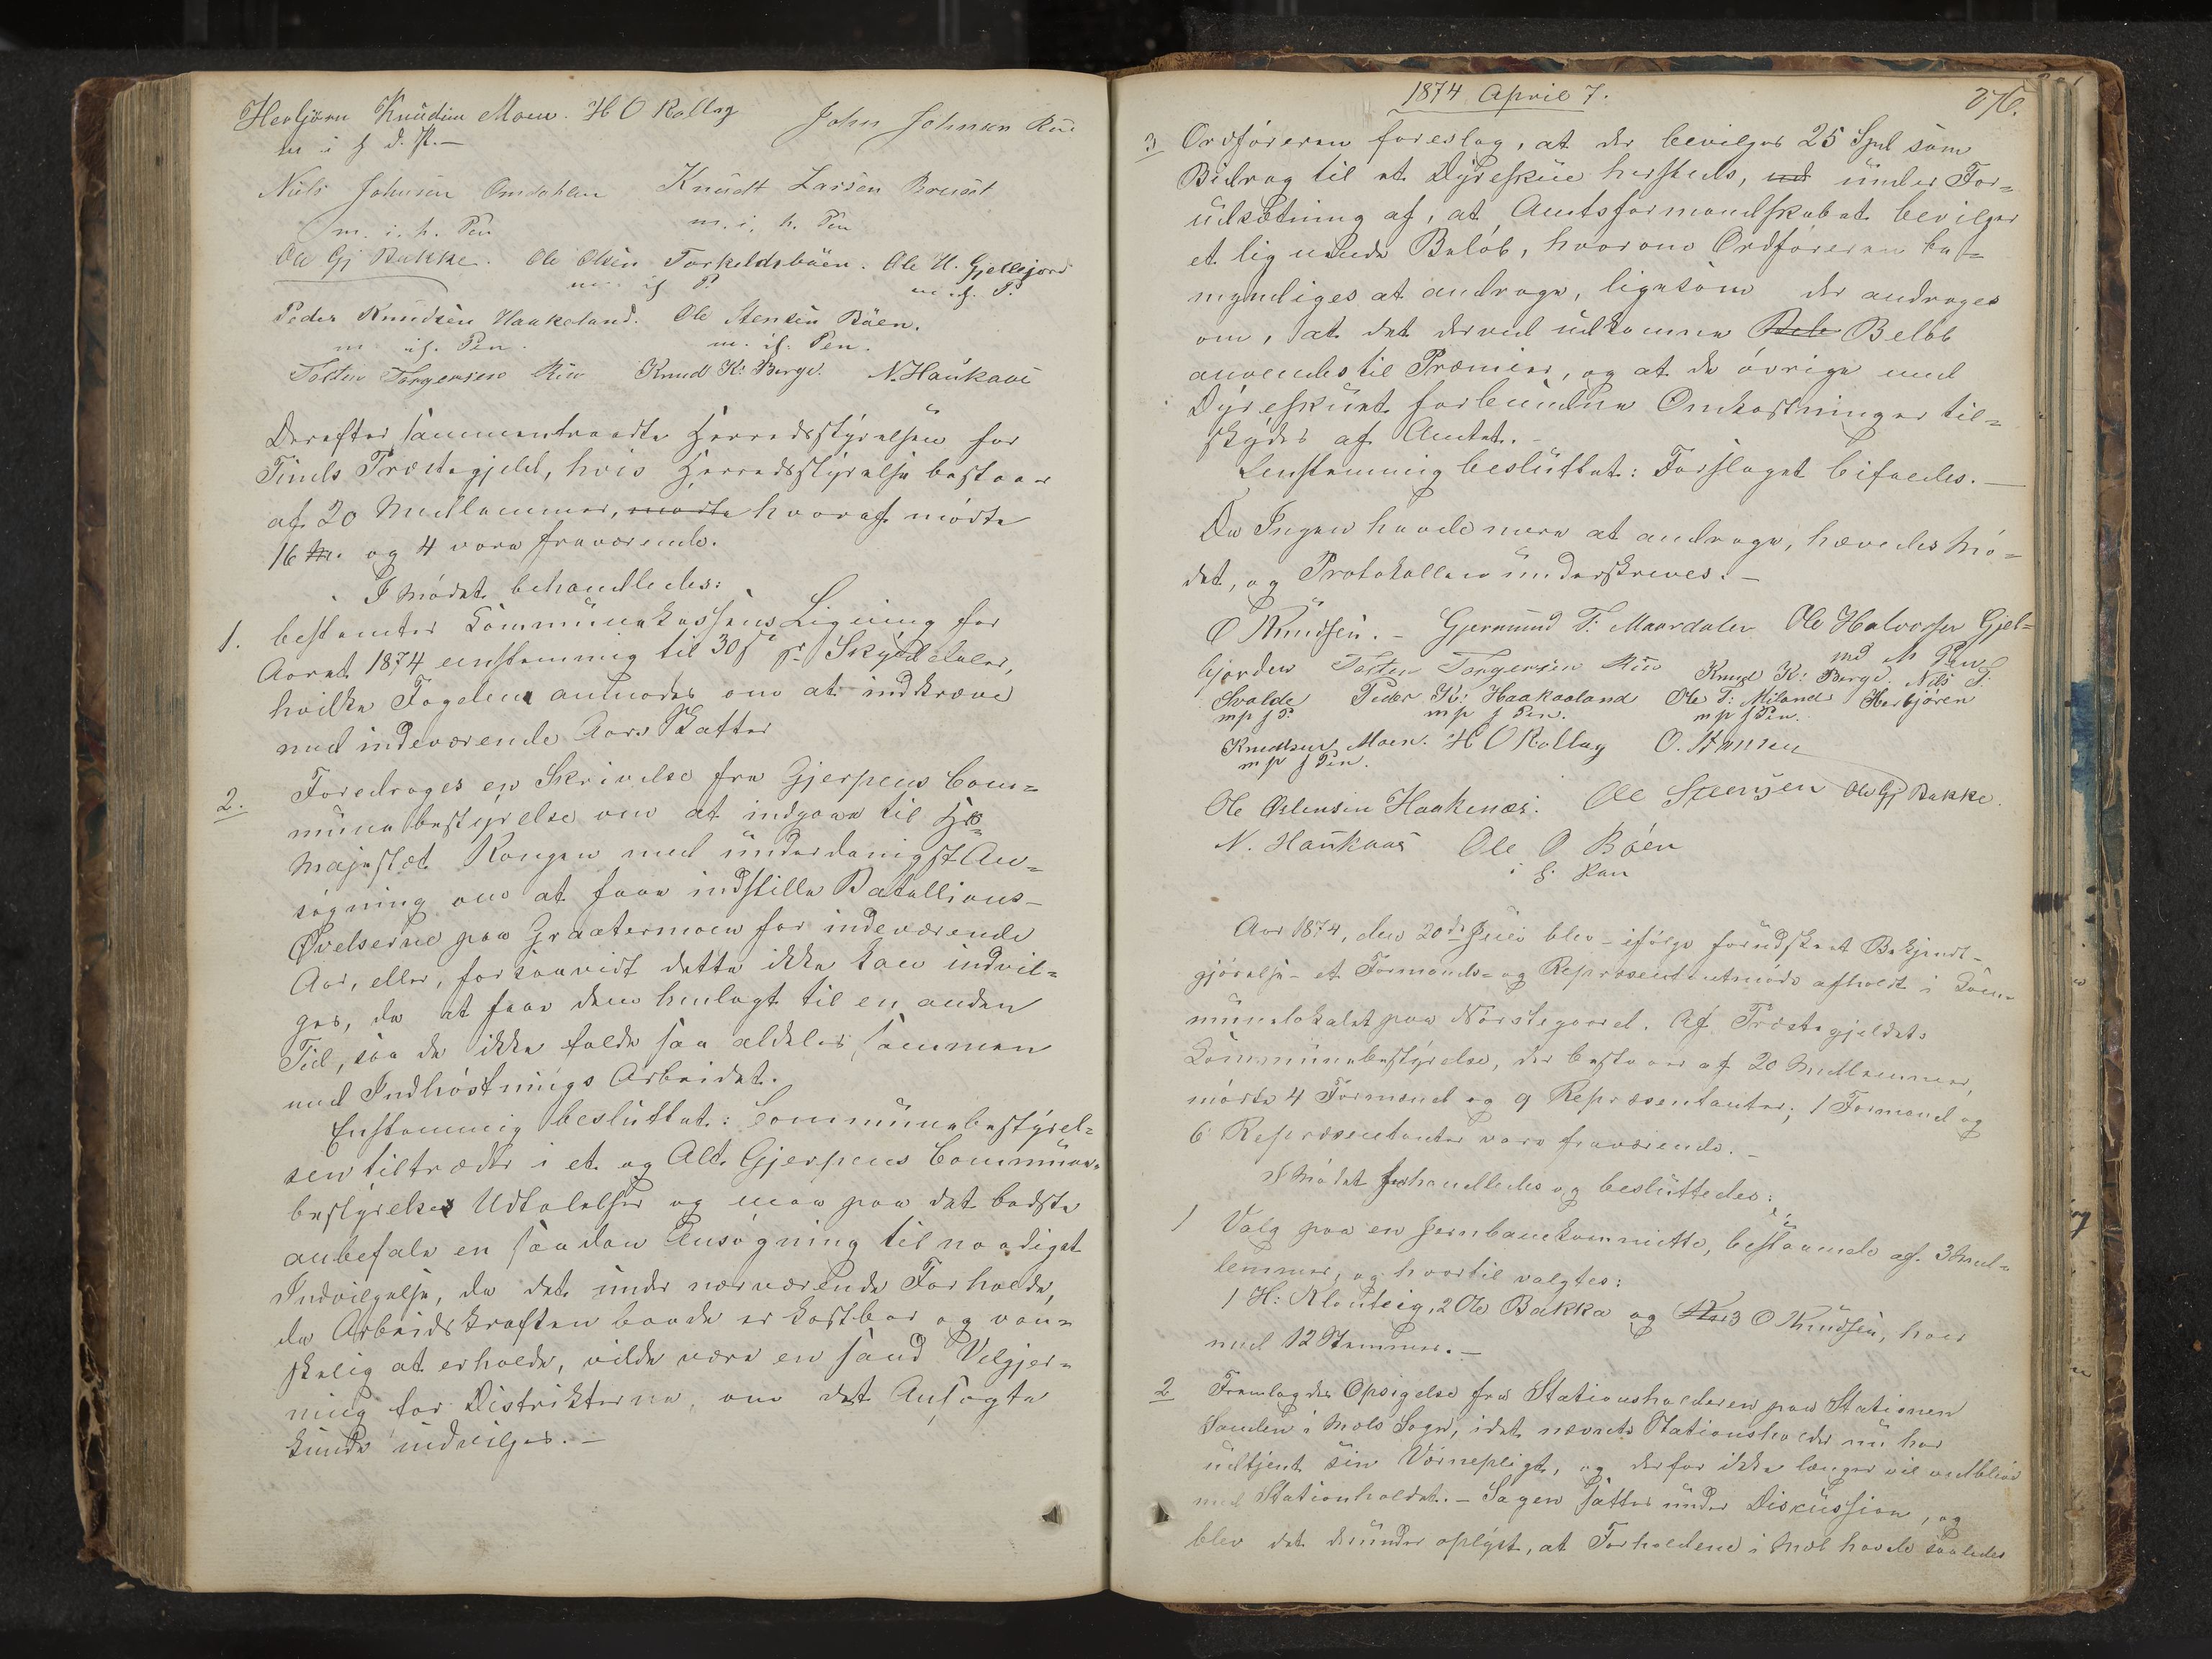 Herbjörn Knudsen Moen. H O Kallag John Johnsen Rue
m i f d. P.—
Nils Johnsen Omdahlen Knudt Larsen
m. i. h. Pen m. i. h. Pen
Ole Gj Bakke. Ole Olsen Torkeldsböen. Ole H. Gjellejord
m. if P. m. if. P.
Peder Knudsen Haakeland. Ole Stensen Böen.
m if. Pen. m. if. Pen.
Tosten Torgersen Rue Knud K: Berge. N. Haukaas
Derefter sammentraadte Herredsstÿrelsen for
Tinds Præstegjeld, hvis Herredsstÿrelse bestaar
af 20 Medlemmer, mödte hvoraf mödte
16 M. og 4 vare fraværende.
I Mödet behandledes:
1. bestemtes Communekassens Ligning for
Aaret 1874 eenstemmig til 30 pr. Skÿlddaler,
hvilke Fogden anmodes om at indkræve
med indeværende Aars Skatter
2. Foredroges en Skrivelse fra Gjerpens Com=
munebestÿrelse om at indgaae til Hs
Majestæt Kongen med underdanigst An=
søgning om at faae indstille Batallions-
Øvelserne paa Graatenmoen for indeværende
Aar, eller, forsaavidt dette ikke kan indvil=
ges, da at faae dem henlagt til en anden
Tid, saa de ikke falde saa aldeles sammen
med Indhöstnings Arbeidet.
Enstemmig besluttet: Communebestÿrel=
sen tiltræder i et og Alt Gjerpens Commune=
bestÿrelses Udtalelser og maa paa det bedste
anbefale en saadan Ansögning til naadigst
Indvilgelse, da det under nærværende Forholde,
da Arbeidskraften baade er kostbar og van=
skelig at erholde, vilde være en sand Velgjer=
ning for Distrikterne, om det Ansøgte
kunde indvilges. —
1874 April 7. 276.
3 Ordföreren foreslog, at der bevilges 25 Spd som
Bidrag til et Dÿreskue hersteds, ud under For=
udsætning af, at Amtsformandskabet bevilger
et lignende Belöb, hvorom Ordföreren be=
myndiges at andrage, ligesom der andrages
om, at det derved udkomne Bele Belöb
anvendes til Præmier, og at de övrige med
Dÿreskuet forbundne Omkostninger til=
skÿdes af Amtet. —
Eenstemmig besluttet: Forslaget bifaldes. —
Da Ingen havde mere at andrage, hævedes Mö=
det, og Protokollen underskreves. —
O Knudsen. – Gjermund T. Maardalen Ole Halvorsen Gjel=
bjorden Tosten Torgersen Rue Knud K: Berge. Nils J.
med M Pen
Svalde Peder K: Haakaaland Ole T: Miland Herbjören
m p f P. m p f Pen. m p f Pen.
Knudsen Moen. H O Kallag O. Hansen
m p f Pen.
Ole Østensen Haakenæs. Ole Steensen Ole Gj Bakke.
N. Haukaas Ole O Böen
i f. Pen
Aar 1874, den 20de Juli blev – ifölge forudskeet Bekjendt-
gjörelse – et Formands- og Repræsentantmöde afholdt i Com-
munelokalet paa Præstegaard. Af Præstegjeldets
Communebestÿrelse, der bestaar af 20 Medlemmer,
mödte 4 Formænd og 9 Repræsentanter; 1 Formand og
6 Repræsentanter vare fraværende. —
I Mödet forhandledes og besluttedes:
1 Valg paa en Jernbanekommitte, bestaaende af 3 Med=
lemmer, og hvortil valgtes:
1 H: Klonteig, 2 Ole Bakka og 3 O Knudsen, hver
med 12 Stemmer. —
2 Fremlagdes Opsigelse fra Stationsholderen paa Stationen
Sanden i Mæls Sogn, idet nævnte Stationsholder nu har
udtjent sin Værnepligt, og derfor ikke længer vil vedblive
med Stationholdet. — Sagen sattes under Discussion, og
blev det derunder oplÿst, at Forholdene i Mæl havde saaledes